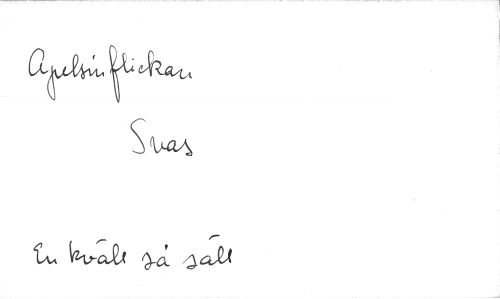 Apelsinflickan
Svas
En kväll så säll